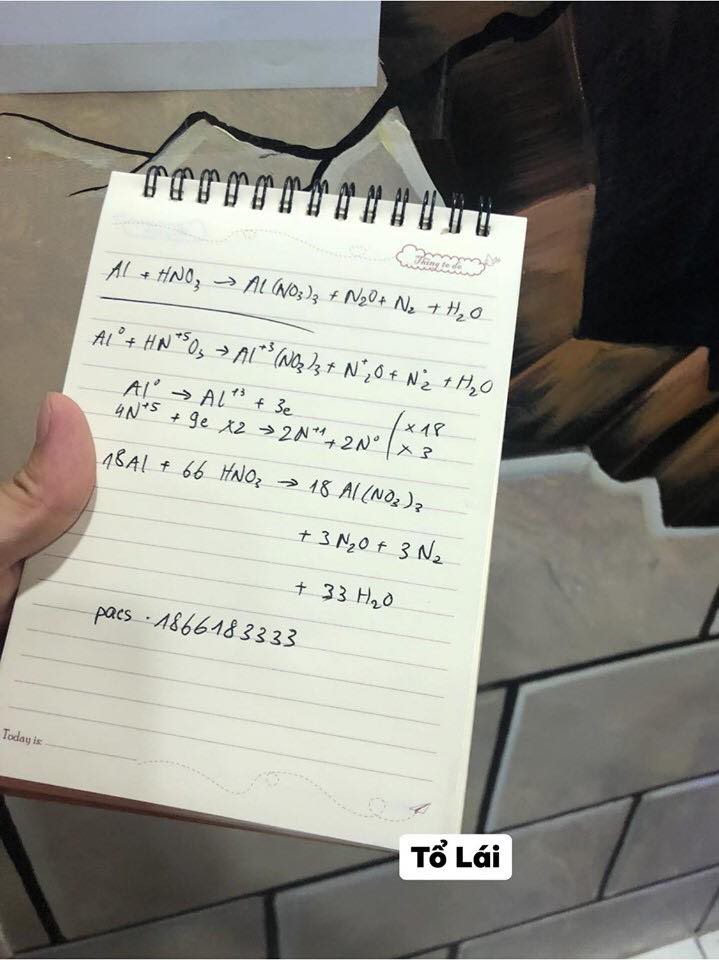 Thing to do
Al + HNO₃ → Al(NO₃)₃ + N₂O + N₂ + H₂O
Al⁰ + HN⁺⁵O₃ → Al⁺³(NO₃)₃ + N⁺₂O + N°₂ + H₂O
Al⁰ → Al⁺³ + 3e | ×18
4N⁺⁵ + 9e ×2 → 2N⁺¹ + 2N⁰ | ×3
18Al + 66 HNO₃ → 18 Al(NO₃)₃
+ 3N₂O + 3N₂
+ 33 H₂O
pacs · 1866183333
Today is:
Tổ Lái